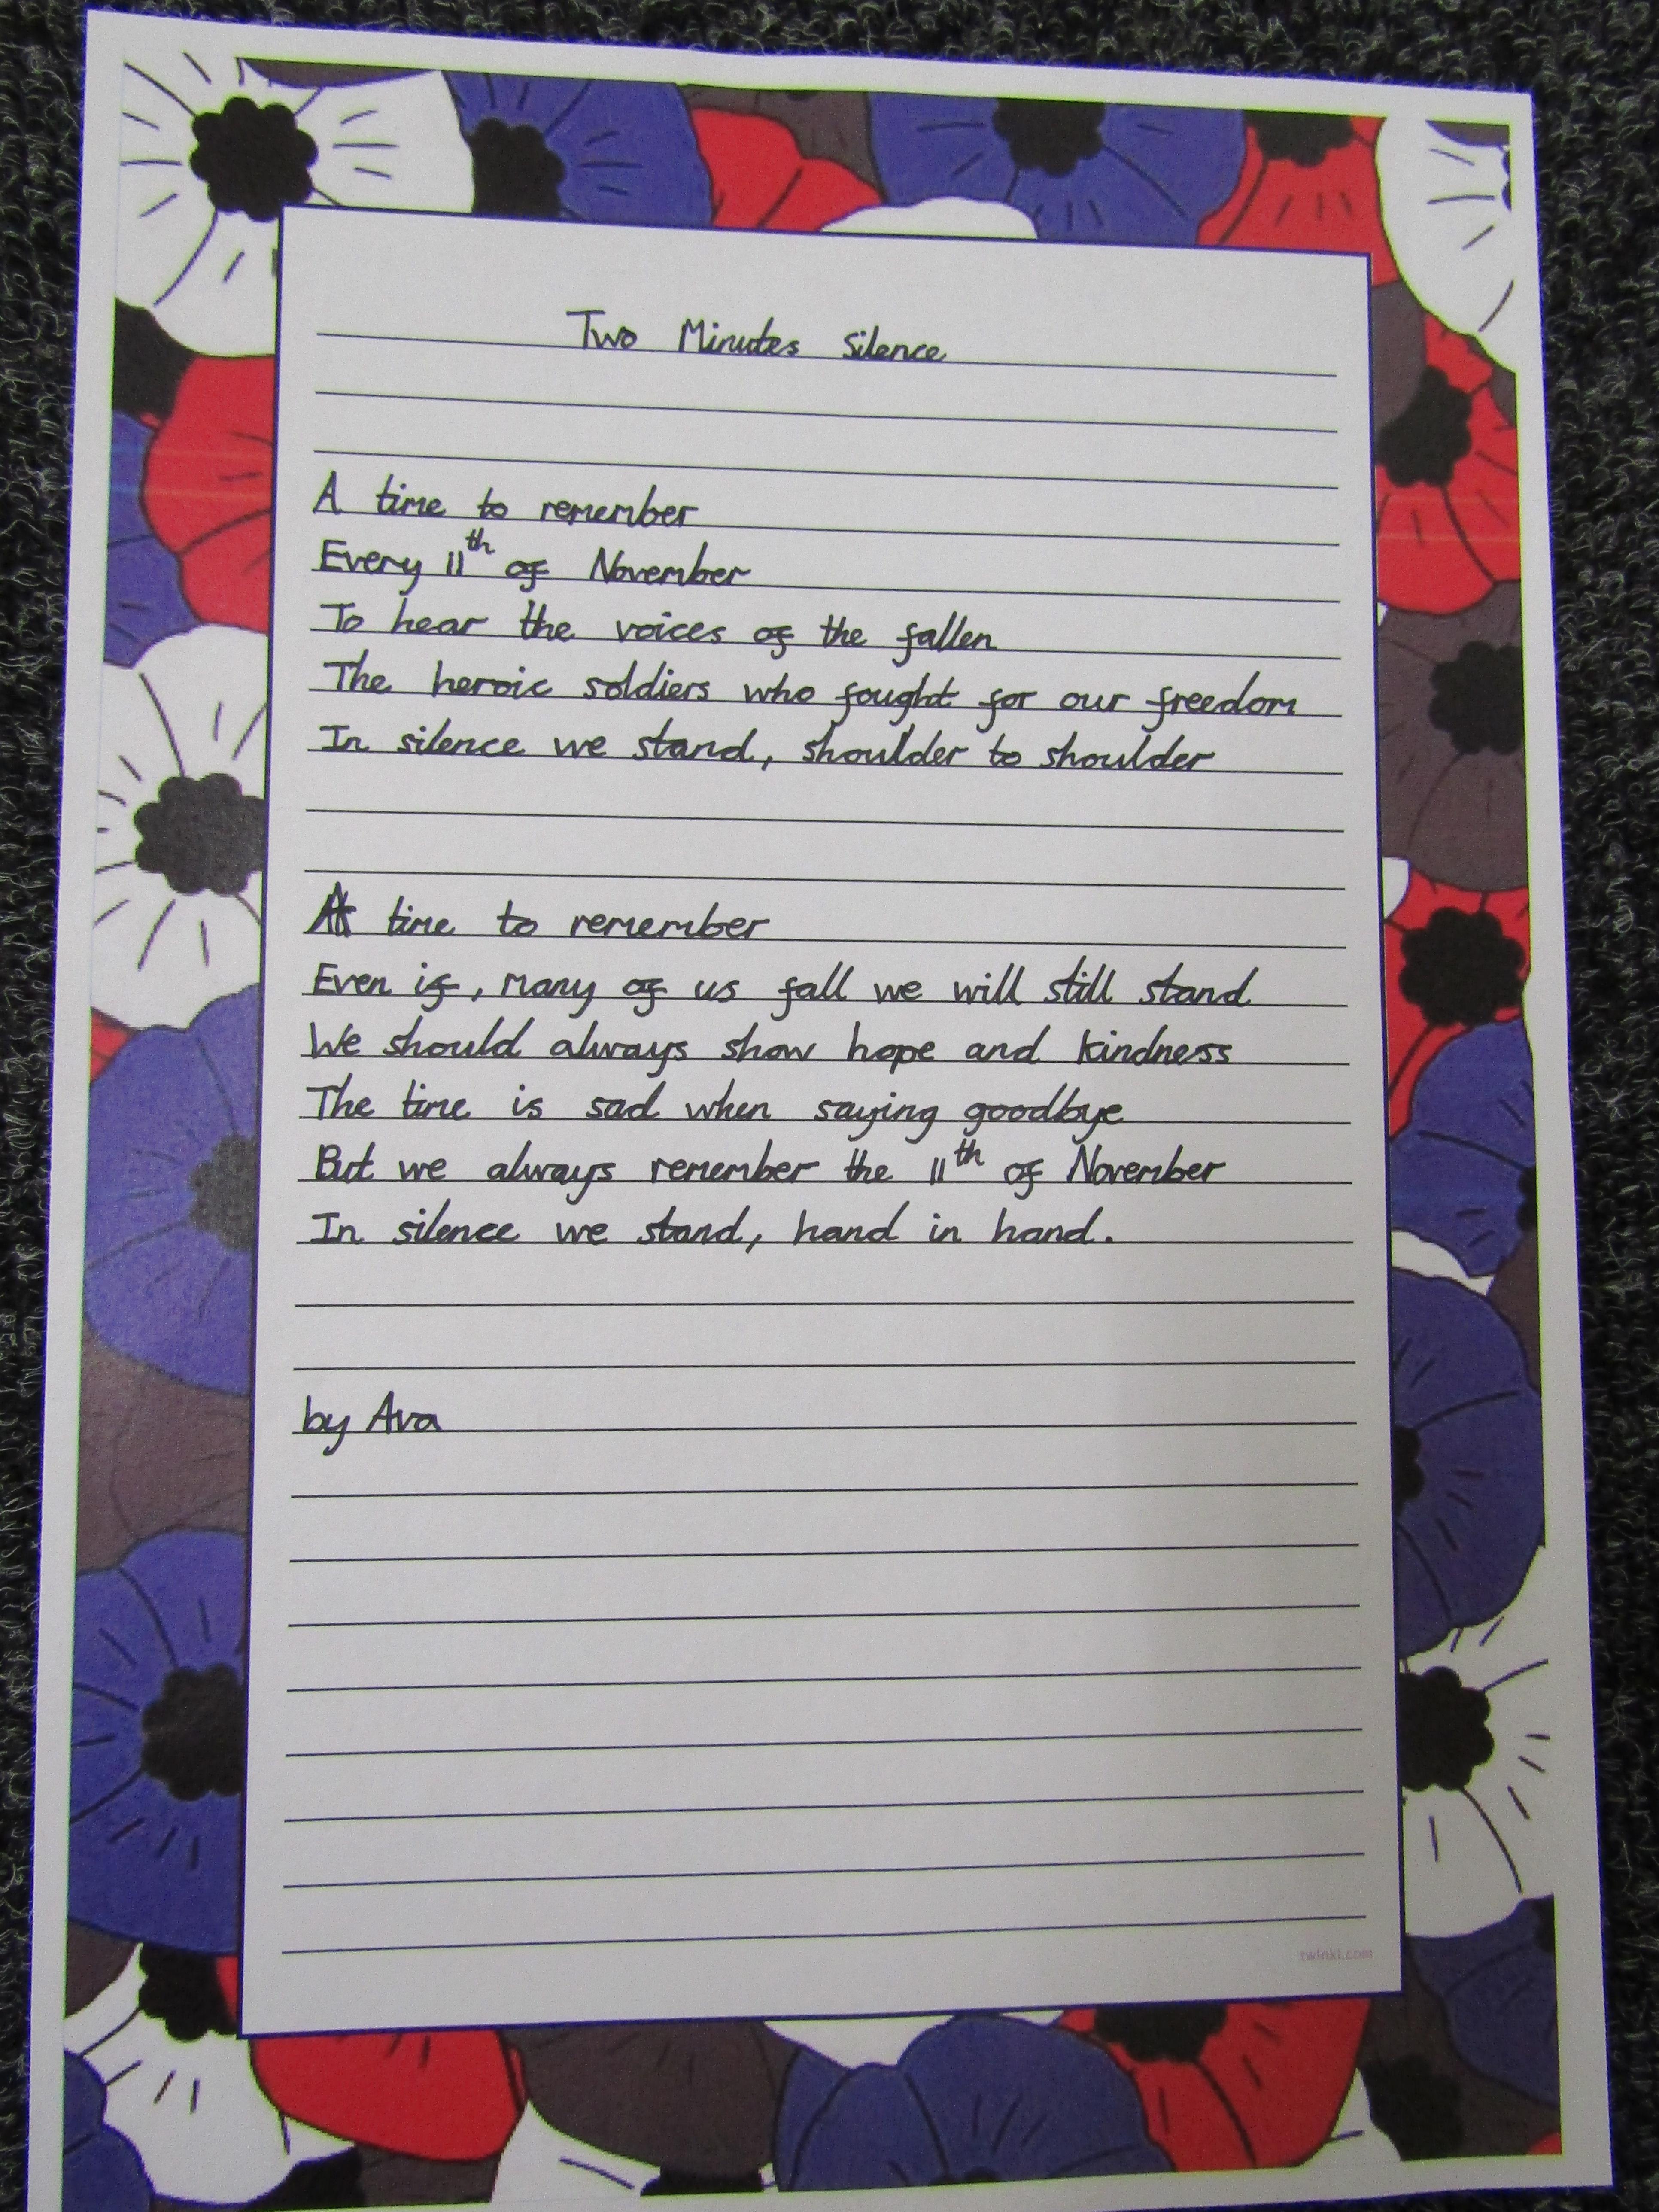 Two Minutes Silence
A time to remember
Every 11th of November
To hear the voices of the fallen
The heroic soldiers who fought for our freedom
In silence we stand, shoulder to shoulder
A time to remember
Even if, many of us fall we will still stand
We should always show hope and kindness
The time is sad when saying goodbye
But we always remember the 11th of November
In silence we stand, hand in hand.
by Ava
twinkl.com